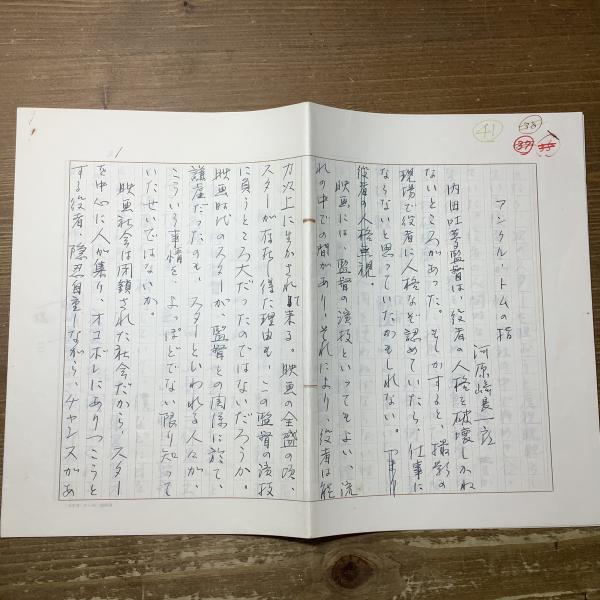 アンクル・トムの指
河原崎長一郎
内田吐夢監督は、役者の人格を破壊しかね
ないところがあった。もしかすると、撮影の
現場で役者に人格など認めていたら、仕事に
ならないと思っていたかもしれない。つまり
役者の人格無視。
映画には、監督の演技といってもよい、流
れの中での間があり、それにより、役者は能
力以上に生かされて来る。映画の全盛の頃、
スターが存在し得た理由も、この監督の演技
に負うところ大だったのではないだろうか。
映画時代のスターが、監督との関係に於て、
謙虚だったのも、スターといわれる人々が、
こういう事情を、よっぽどでない限り知って
いたせいではないか。
映画社会は閉鎖された社会だから、スター
を中心に人が集り、オコボレにありつこうと
する役者、隠忍自重しながら、チャンスがあ
1
41
38
37